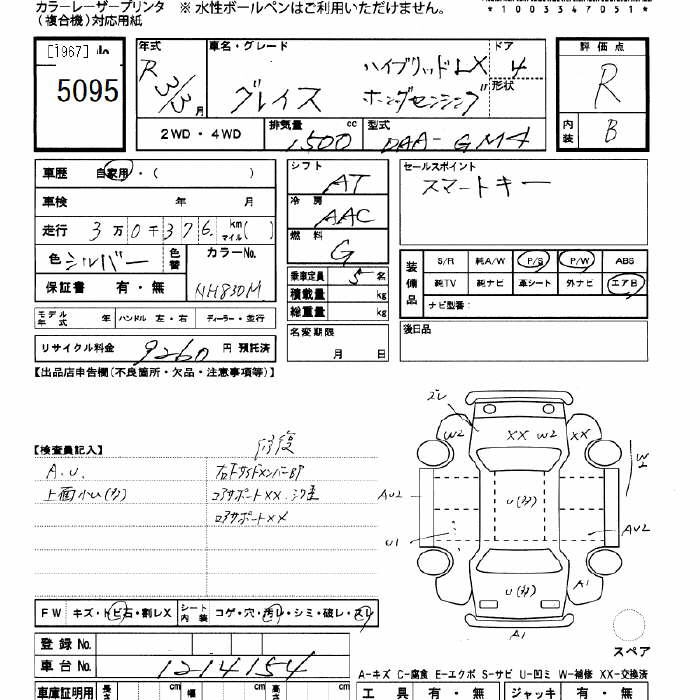 カラーレーザープリンタ ※ 水性ボールペンはご利用いただけません。
(複合機)対応用紙
*1003347051*
[1967]
5095
年式
R 3/3 月
車名・グレード
グレイス
ハイブリッドLX
ホンダセンシング
ドア
4
形状
評価点
R
内装
B
2WD・4WD
排気量 1500 cc
型式 DAA-GM4
車歴 自家用・( )
車検 年 月
走行 3万0千376 km マイル( )
色 シルバー 色替
カラーNo.
NH830M
保証書 有・無
シフト
AT
冷房
AAC
燃料
G
乗車定員 5 名
積載量 kg
総重量 kg
セールスポイント
スマートキー
装備品
S/R 純A/W P/S P/W ABS
純TV 純ナビ 革シート 外ナビ エアB
ナビ型番:
モデル年式 年 ハンドル 左・右 ディーラー・並行
名変期限
月 日
後日品
リサイクル料金 9260 円 預託済
【出品店申告欄(不良箇所・欠品・注意事項等)】
【検査員記入】
修復
A.U.
上面小U(多)
コアサポートXX
ロアサポートXX
W2
XX W2
XX
W2
AU2
U(多)
AU2
U1
U(多)
A1
A1
スペア
FW キズ・トビ石・割レX
シート内装 コゲ・穴・汚レ・シミ・破レ・スレ
登録 No.
車台 No. 1214154
A-キズ C-腐食 E-エクボ S-サビ U-凹ミ W-補修 XX-交換済
車庫証明用 長さ cm 幅 cm 高さ cm
工具 有・無 ジャッキ 有・無